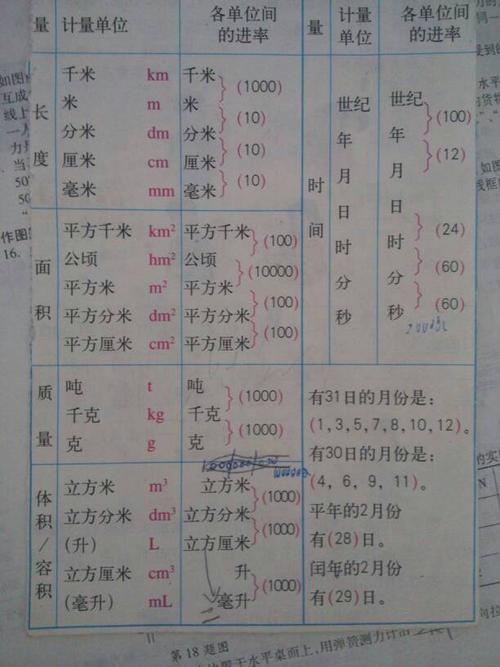 量 计量单位 各单位间的进率
长度
千米 km 千米
(1000)
米 m 米
(10)
分米 dm 分米
(10)
厘米 cm 厘米
(10)
毫米 mm 毫米
面积
平方千米 km² 平方千米
(100)
公顷 hm² 公顷
(10000)
平方米 m² 平方米
(100)
平方分米 dm² 平方分米
(100)
平方厘米 cm² 平方厘米
质量
吨 t 吨
(1000)
千克 kg 千克
(1000)
克 g 克
体积/容积
立方米 m³ 立方米
(1000)
立方分米 dm³ 立方分米
(1000)
(升) L 立方厘米
立方厘米 cm³ 升
(1000)
(毫升) mL 毫升
量 计量单位 各单位间的进率
时间
世纪 世纪
(100)
年 年
(12)
月 月
日 日
(24)
时 时
(60)
分 分
(60)
秒 秒
有31日的月份是:
(1,3,5,7,8,10,12)。
有30日的月份是:
(4, 6, 9, 11)。
平年的2月份
有(28)日。
闰年的2月份
有(29)日。
如图
互成
线上
作图
16.
第18题图
于水平桌面上,用弹簧测力计沿